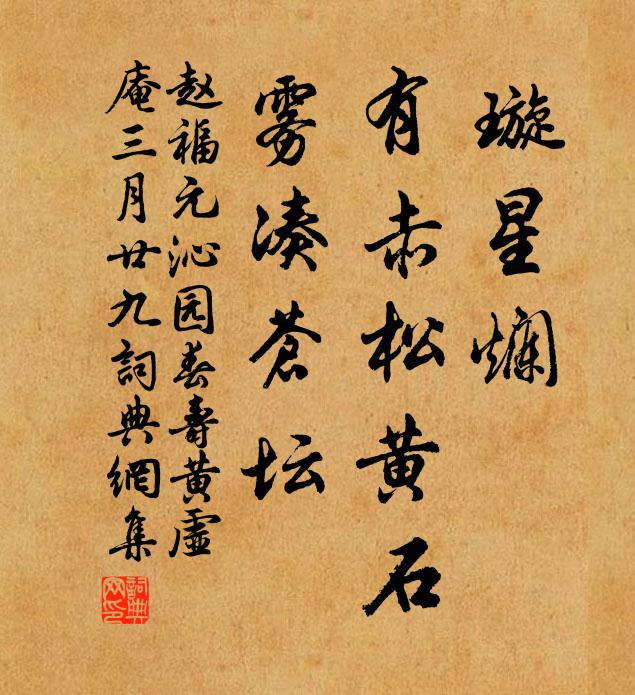 璇星斓
有赤松黄石
雾凑苍坛
赵福元沁园春寿黄虚
庵三月廿九詞典網集
詞典
网印